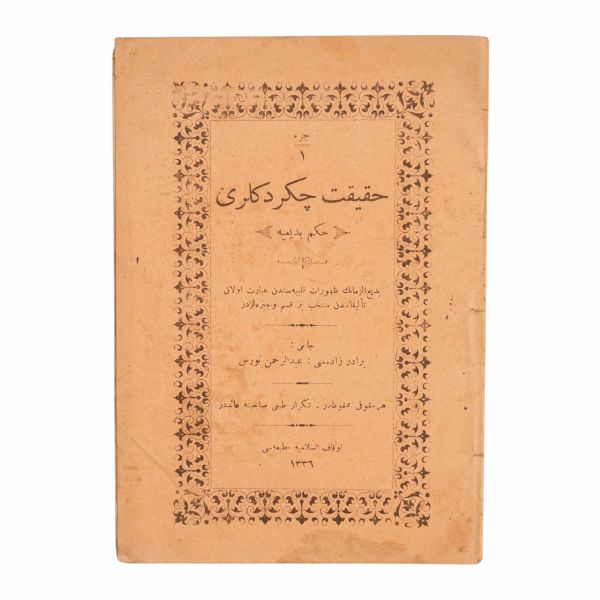 جزء
١
حقیقت چکردکلری
حکم بدیعیه
بدیع الزمانك ظهورات قلبیه‌سندن عبارت اولان
تألیفاتندن منتخب بر قسم وجیزه‌لردر
جامعی :
برادرزاده‌سی : عبدالرحمن نورسی
هر حقوقی محفوظدر . تکرار طبعی صاحبنه عائددر
اوقاف اسلامیه مطبعه‌سی
١٣٣٦